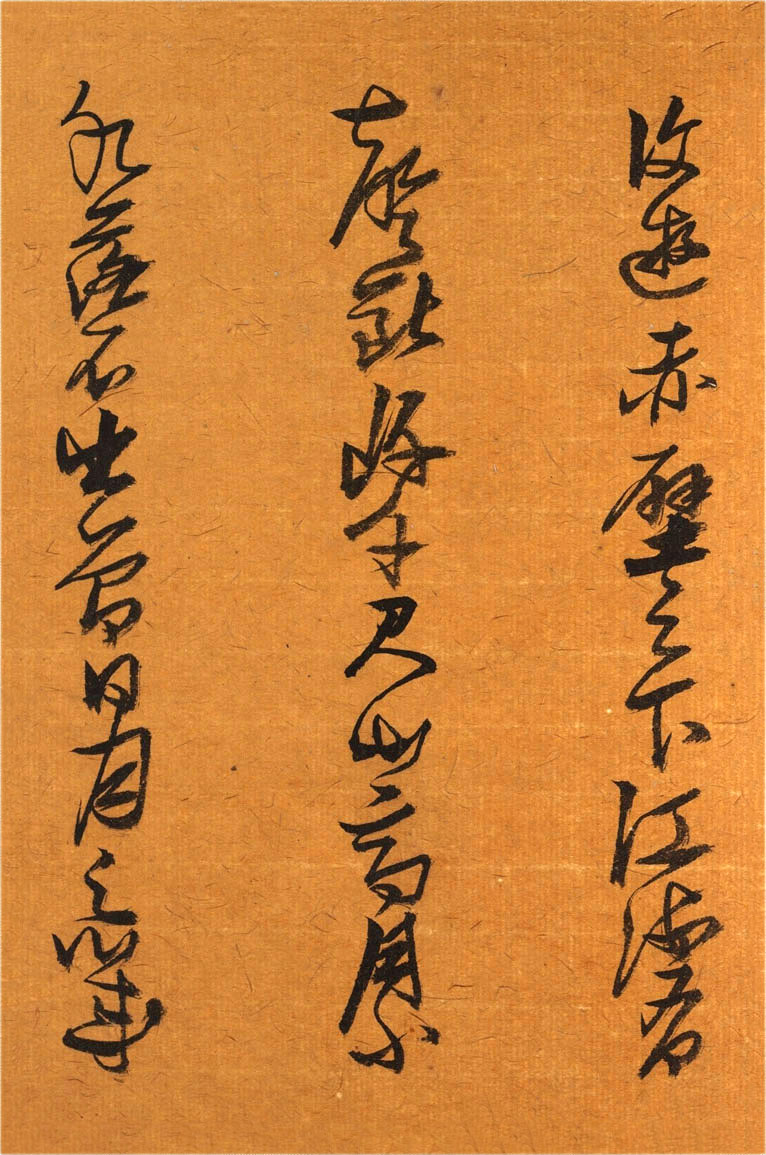 復遊赤壁之下江流有
聲斷岸千尺山高月小
水落石出曾日月之幾